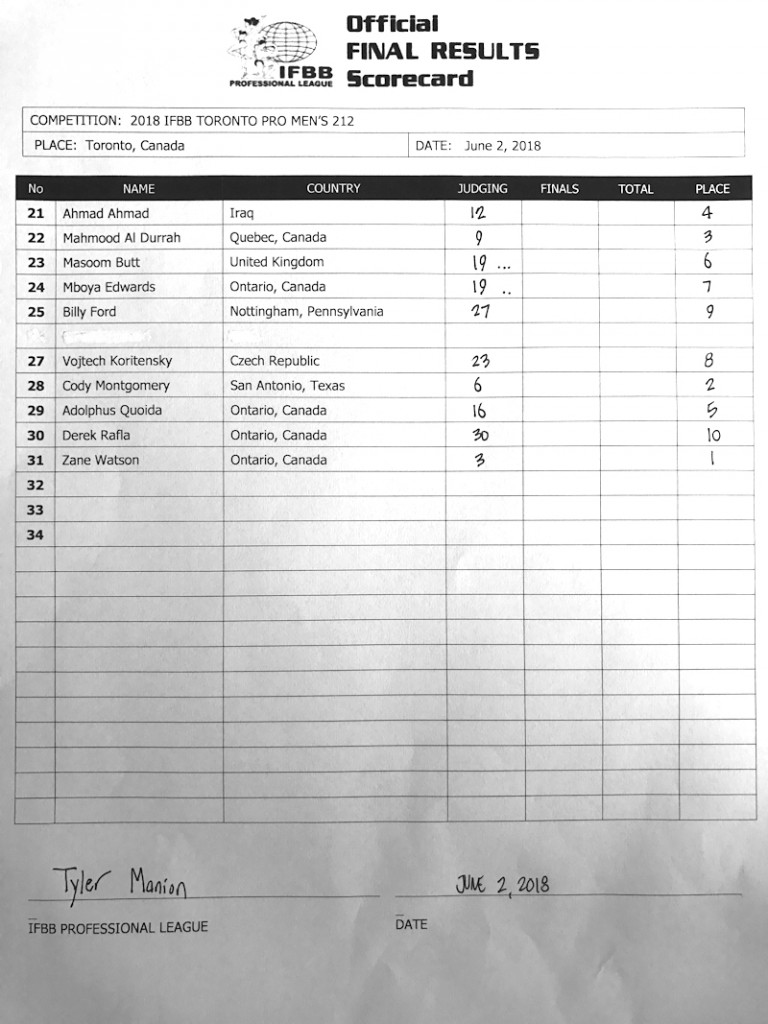 Official
FINAL RESULTS
Scorecard
IFBB
PROFESSIONAL LEAGUE
COMPETITION: 2018 IFBB TORONTO PRO MEN'S 212
PLACE: Toronto, Canada DATE: June 2, 2018
No NAME COUNTRY JUDGING FINALS TOTAL PLACE
21 Ahmad Ahmad Iraq 12 4
22 Mahmood Al Durrah Quebec, Canada 9 3
23 Masoom Butt United Kingdom 19 ... 6
24 Mboya Edwards Ontario, Canada 19 .. 7
25 Billy Ford Nottingham, Pennsylvania 27 9
27 Vojtech Koritensky Czech Republic 23 8
28 Cody Montgomery San Antonio, Texas 6 2
29 Adolphus Quoida Ontario, Canada 16 5
30 Derek Rafla Ontario, Canada 30 10
31 Zane Watson Ontario, Canada 3 1
32
33
34
Tyler Manion JUNE 2, 2018
IFBB PROFESSIONAL LEAGUE DATE